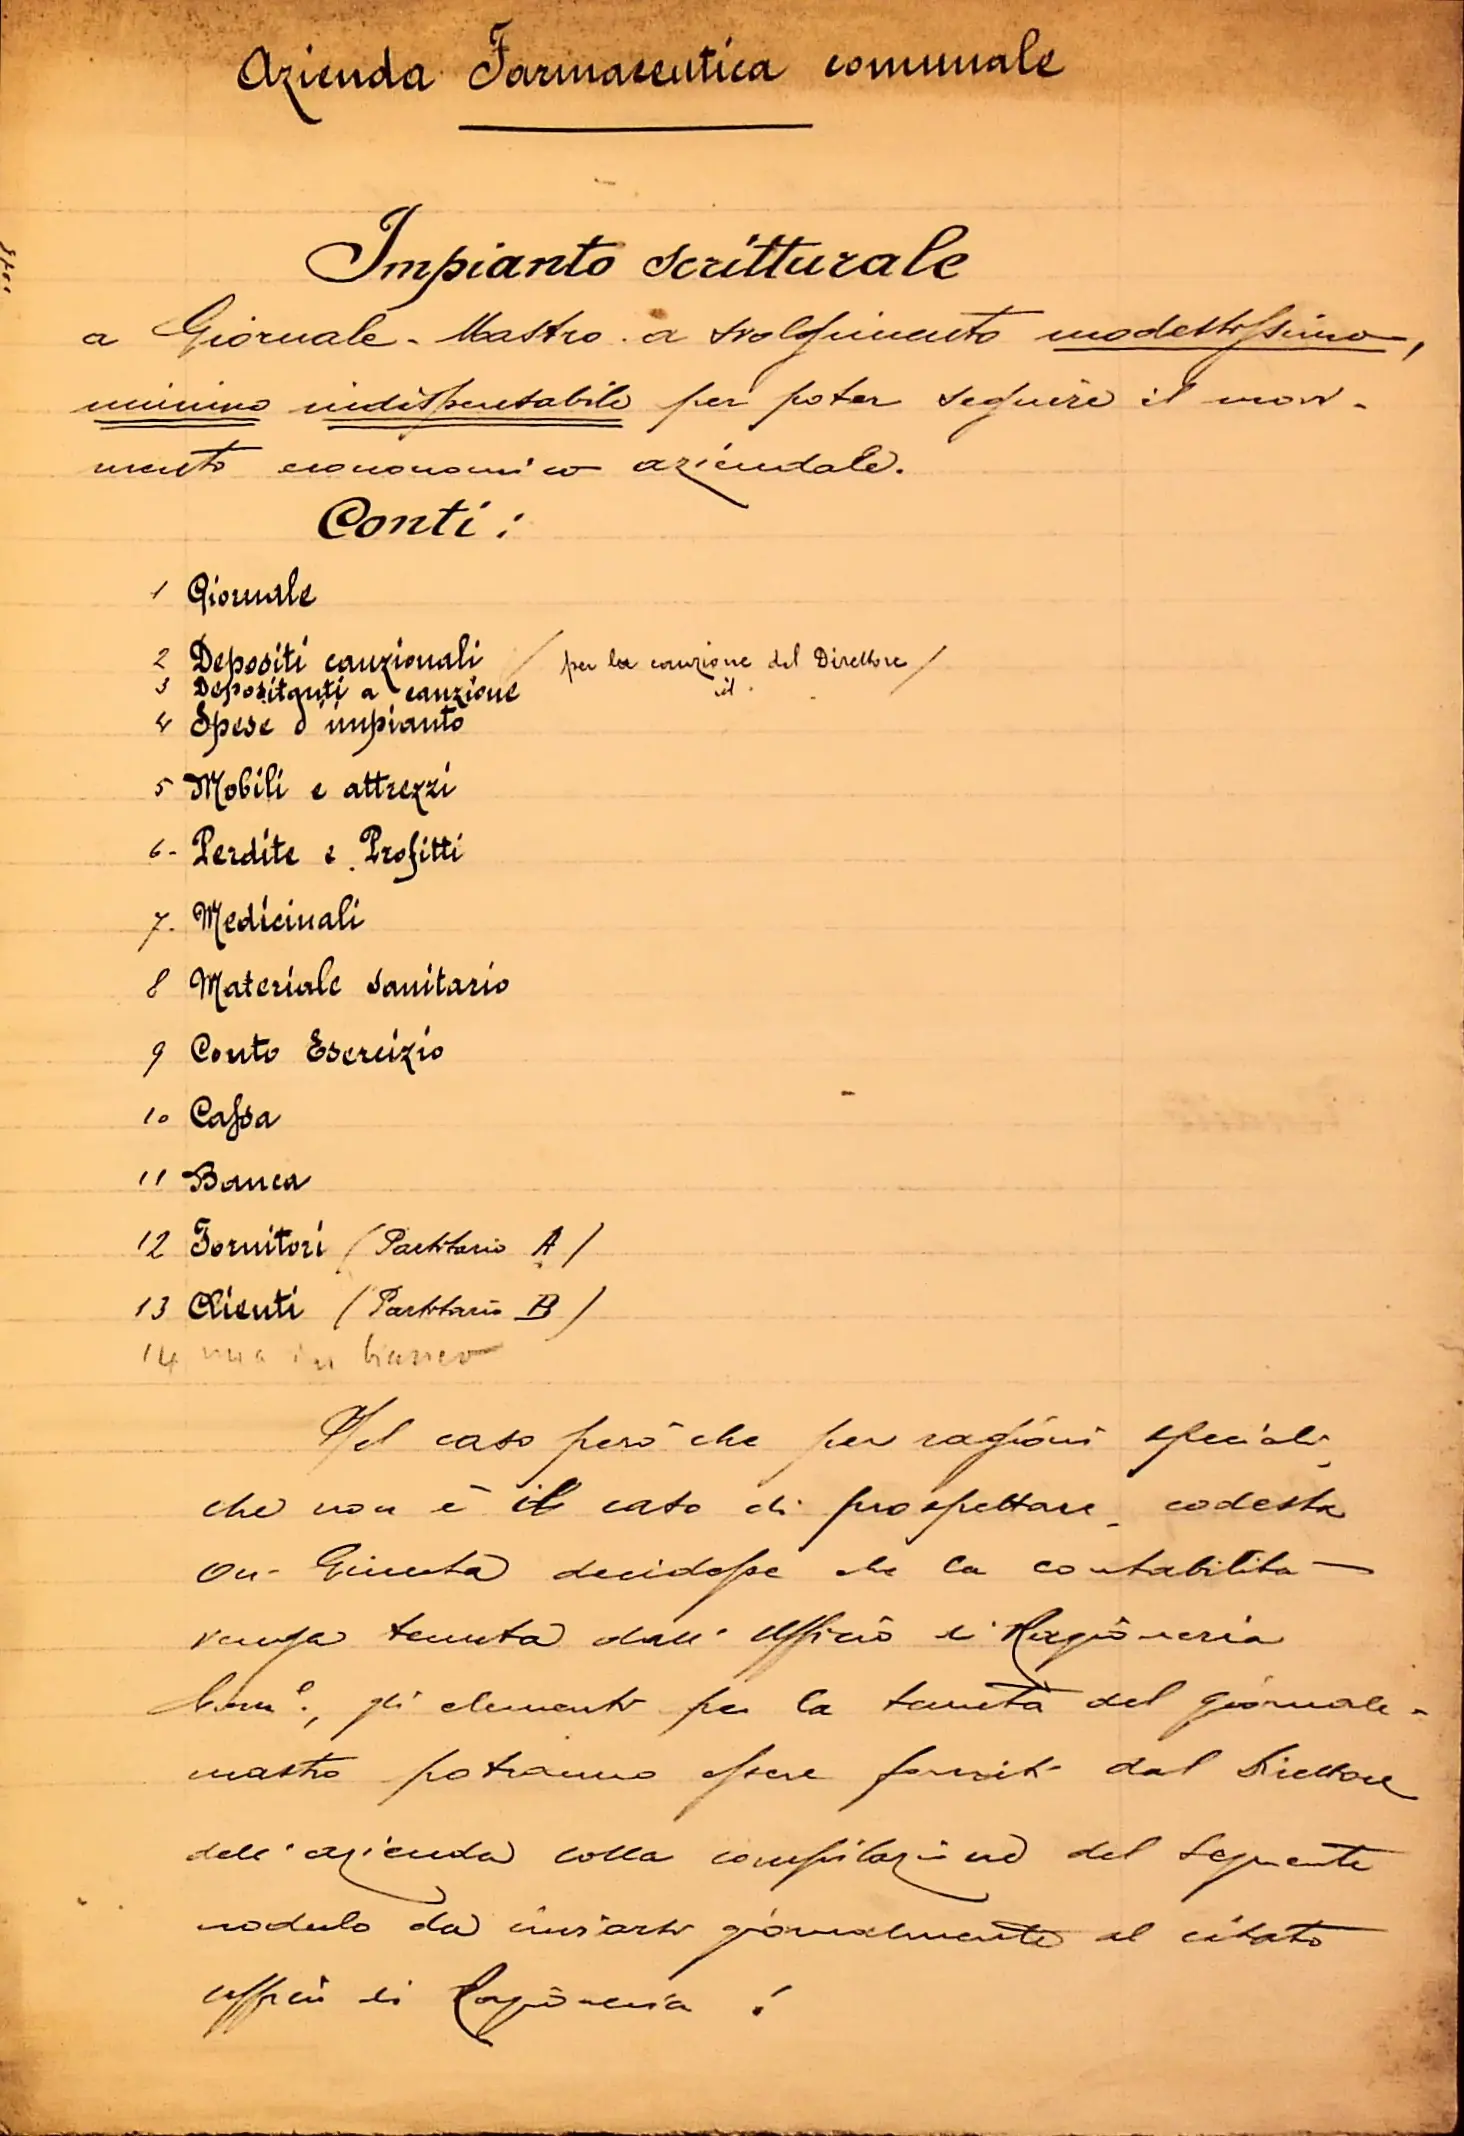 Azienda Farmaceutica comunale
Impianto scritturale
a Giornale-Mastro a svolgimento modestissimo,
minimo indispensabile per poter seguire il movi-
mento economico aziendale.
Conti:
1 Giornale
2 Depositi cauzionali (per la cauzione del Direttore)
3 Depositanti a cauzione id.
4 Spese d'impianto
5 Mobili e attrezzi
6- Perdite e Profitti
7. Medicinali
8 Materiale sanitario
9 Conto Esercizio
10 Cassa
11 Banca
12 Fornitori (Partitario A)
13 Clienti (Partitario B)
14 in bianco
Nel caso però che per ragioni speciali,
che non è il caso di prospettare, codesta
On. Giunta decidesse che la contabilità
venga tenuta dall'Ufficio di Ragioneria
Com.e, gli elementi per la tenuta del giornale-
mastro potranno essere forniti dal Direttore
dell'azienda colla compilazione del seguente
modulo da inviarsi giornalmente al citato
ufficio di Ragioneria: